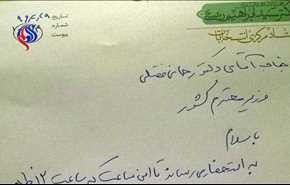 دکتر سید ابراهیم رئیسی
ستاد مرکزی انتخابات
تاریخ
شماره
پیوست
۹۶/۲/۲۹
جناب آقای دکتر رحمانی فضلی
وزیر محترم کشور
با سلام
به استحضار می رساند تا این ساعت که ساعت ۱۲ ظهر